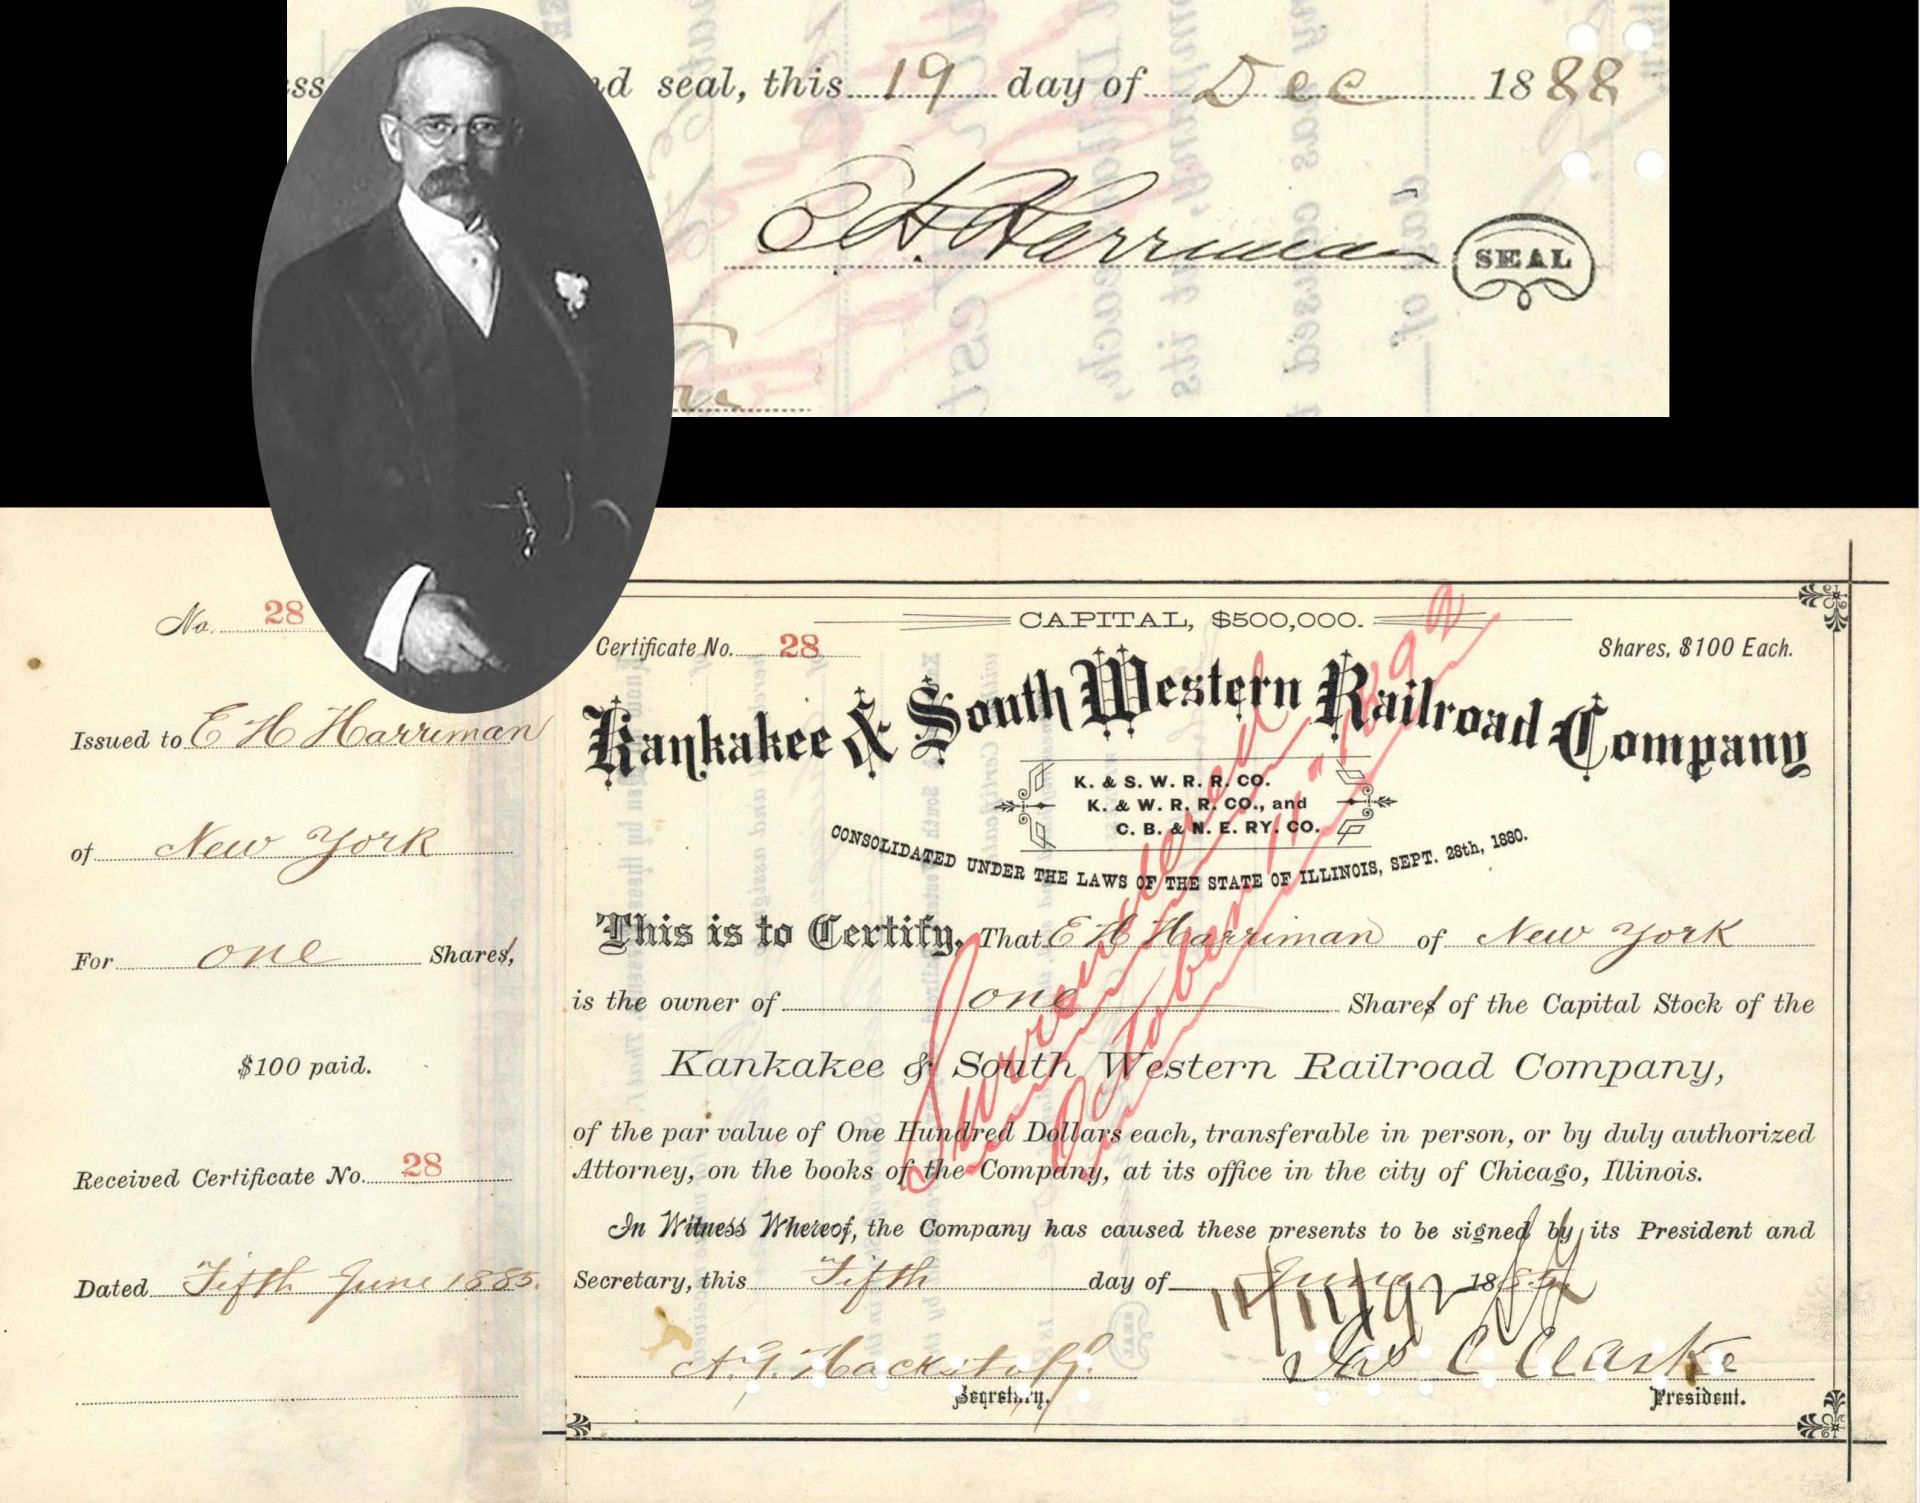 nd seal, this 19 day of Dec 1888
E. H. Harriman
SEAL
No. 28
Issued to E H Harriman
of New York
For one Shares,
$100 paid.
Received Certificate No. 28
Dated Fifth June 1885.
CAPITAL, $500,000.
Certificate No. 28
Shares, $100 Each.
Kankakee & South Western Railroad Company
K. & S. W. R. R. CO.
K. & W. R. R. CO., and
C. B. & N. E. RY. CO.
CONSOLIDATED UNDER THE LAWS OF THE STATE OF ILLINOIS, SEPT. 28th, 1880.
This is to Certify, That E H Harriman of New York
is the owner of one Shares of the Capital Stock of the
Kankakee & South Western Railroad Company,
of the par value of One Hundred Dollars each, transferable in person, or by duly authorized
Attorney, on the books of the Company, at its office in the city of Chicago, Illinois.
In Witness Whereof, the Company has caused these presents to be signed by its President and
Secretary, this Fifth day of June 1885
11/11/92
Jas C Clarke
Secretary.
President.
Surrendered
October 11" 1892